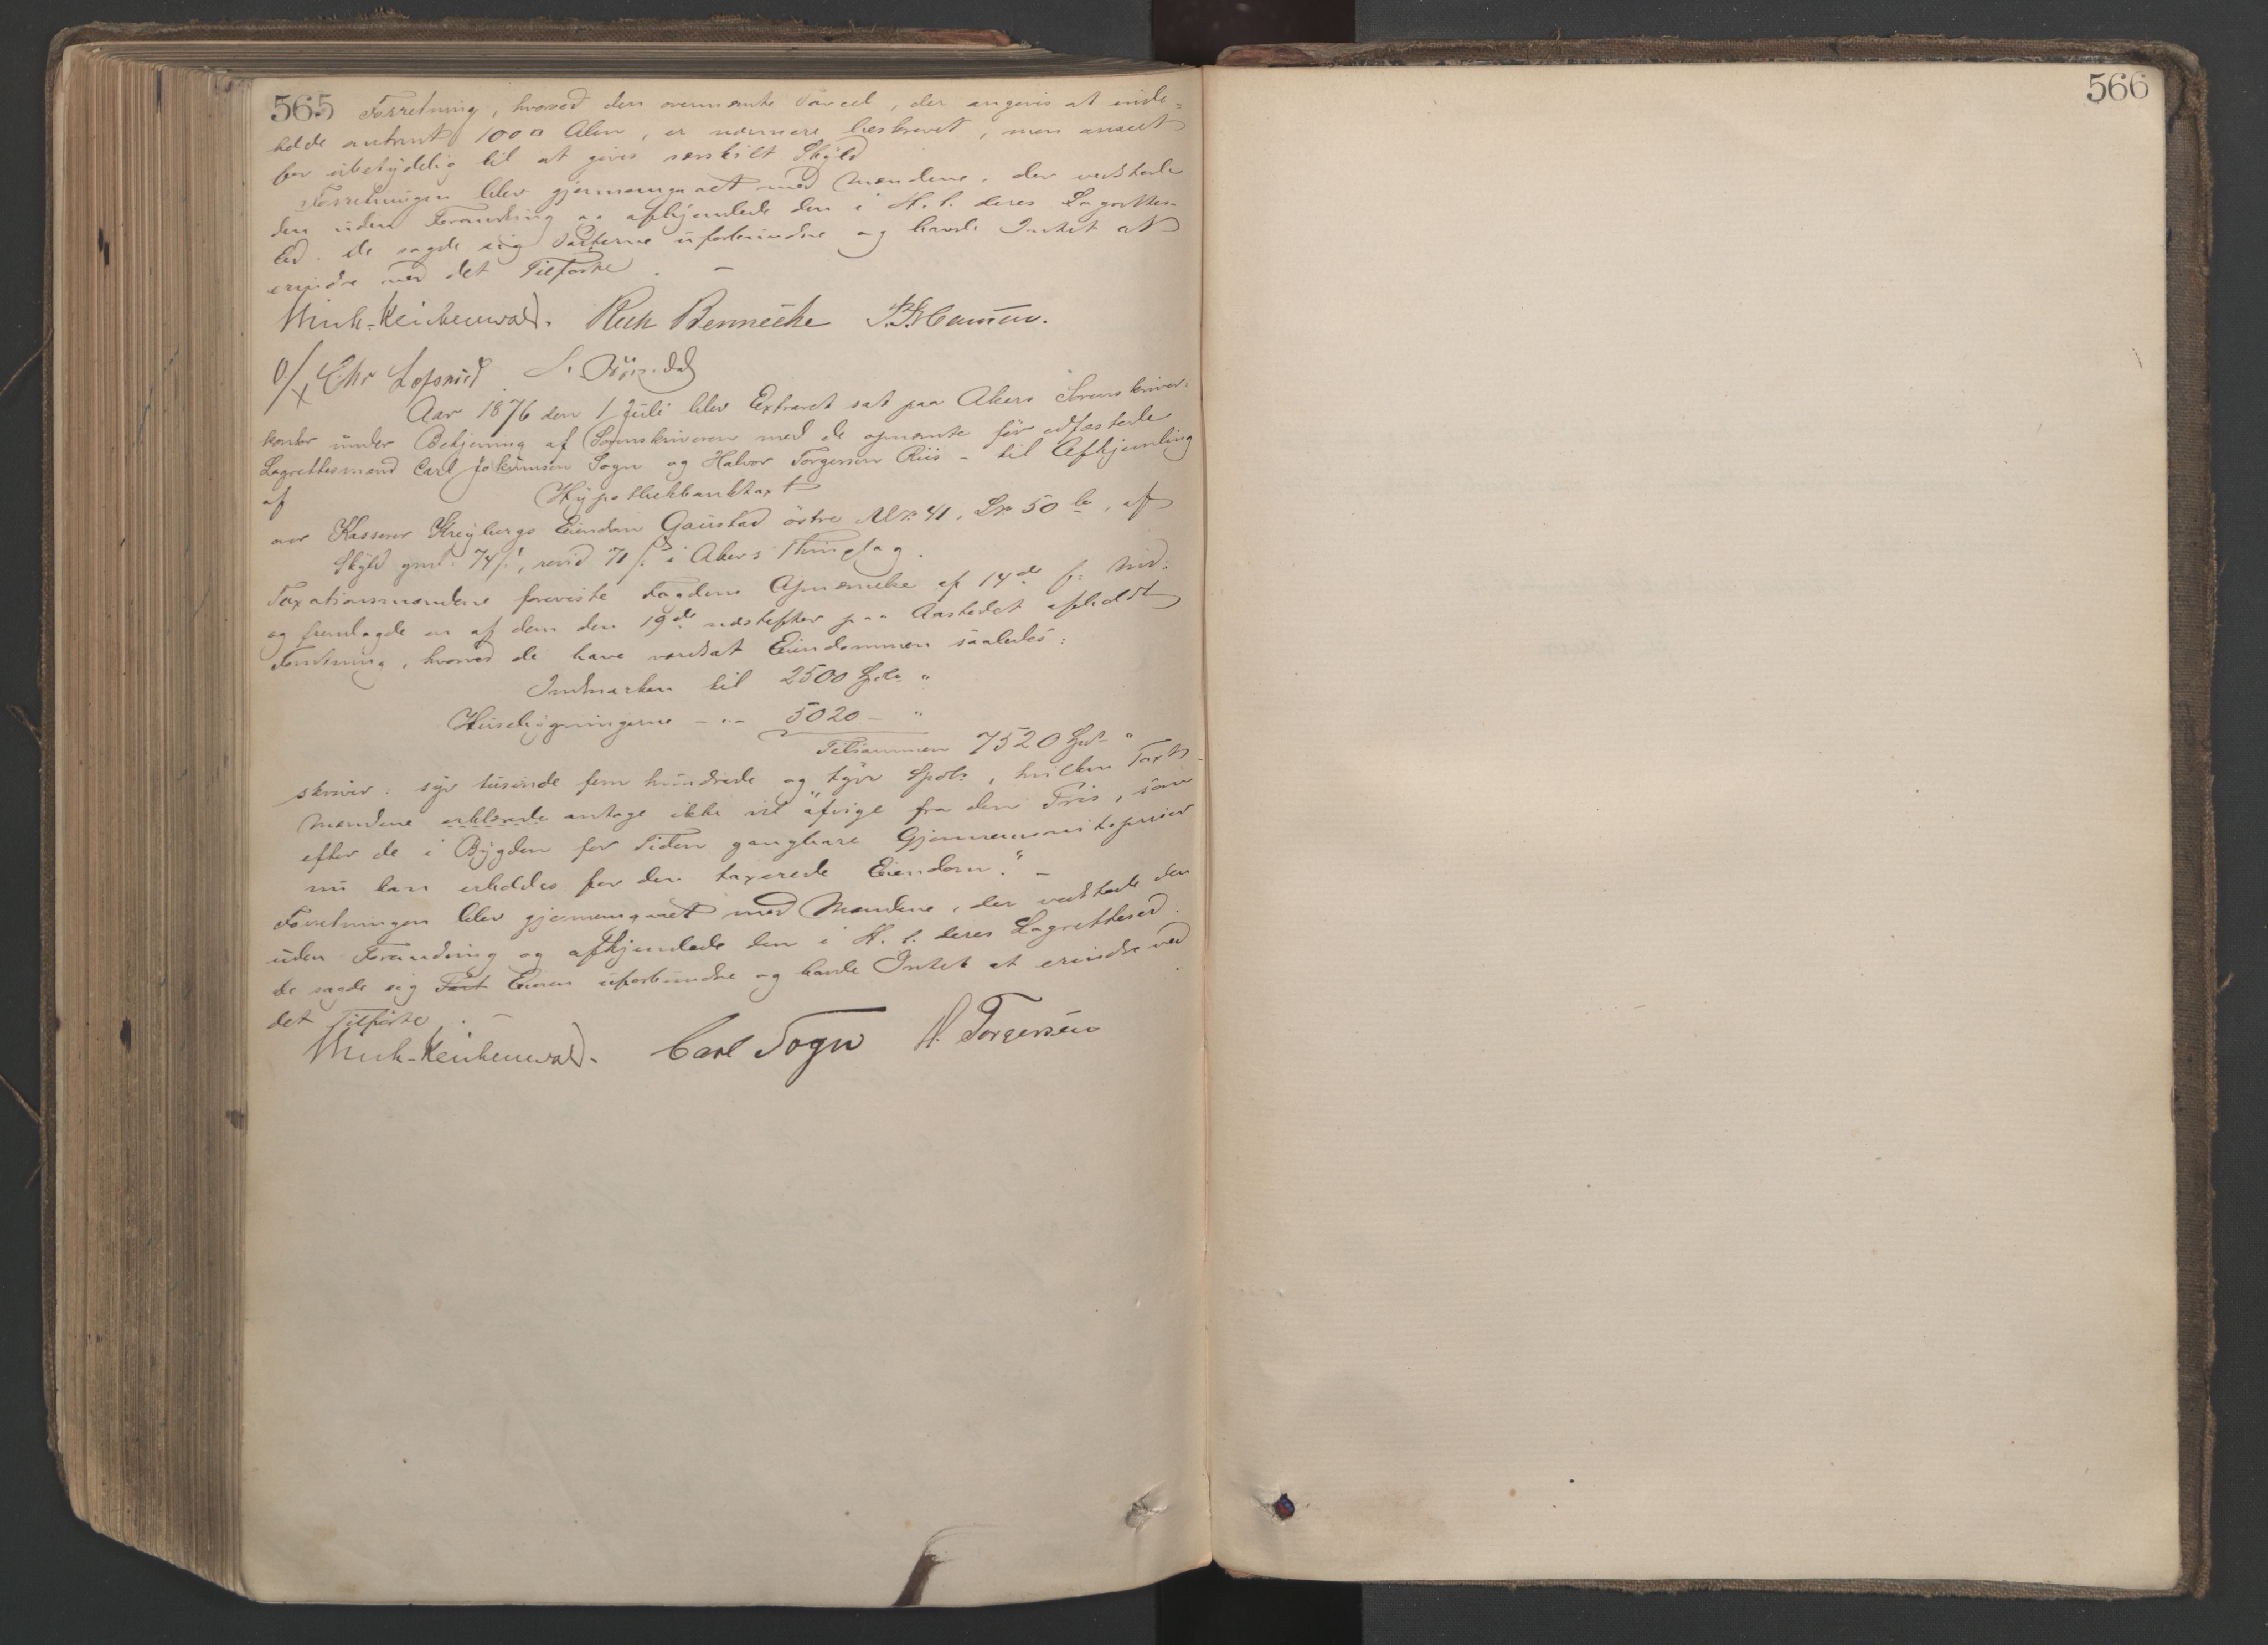 565 Forretning, hvorved den ovennævnte Parcel, der angives at inde-
holde omtrent 100 □ Alen, er nærmere beskrevet, men anseet
for ubetydelig til at gives særskilt Skyld
Forretningen blev gjennemgaaet med Mændene, der vedstode
den uden Forandring og afhjemlede den i H. t. deres Lagrettes-
Ed. De sagde sig Parterne uforbundne og havde Intet at
erindre ved det Tilførte. –
Munch-Reichenwald. Rich Bennecke
Chr
Aar 1876 den 1 Juli blev Extraret sat paa Akers Sorenskriver-
kontor under Betjening af Sorenskriveren med de opnævnte før edfæstede
Lagrettesmænd Carl Jokumsen Sogn og Halvor Torgersen Riis – til Afhjemling
af Hypothekbanktaxt
over Kasserer Kreybergs Eiendom Gaustad østre M. No 41, L. No 50 b, af
Skyld gml: 74 s, revid 71 s i Akers Thinglag.
Taxationsmændene foreviste Fogdens Opnævnelse af 14de f: Md:
og fremlagde en af dem den 19de næstefter paa Aastedet afholdt
Forretning, hvorved de have værdsat Eiendommen saaledes:
Indmarken til 2500 Spdlr "
Husebygningerne – " – 5020 – "
Tilsammen 7520 Spd "
skriver: syv tusinde fem hundrede og tyve Spdlr, hvilken Taxt
Mændene erklærede antage ikke vil "afvige fra den Pris, som
efter de i Bygden for Tiden gangbare Gjennemsnitspriser
nu kan erholdes for den taxerede Eiendom." –
Forretningen blev gjennemgaaet med Mændene, der vedstode den
uden Forandring og afhjemlede den i H. t. deres Lagrettesed.
de sagde sig Part Eieren uforbundne og havde Intet at erindre ved
det Tilførte. –
Munch-Reichenwald. Carl Sogn H. Torgersen
566